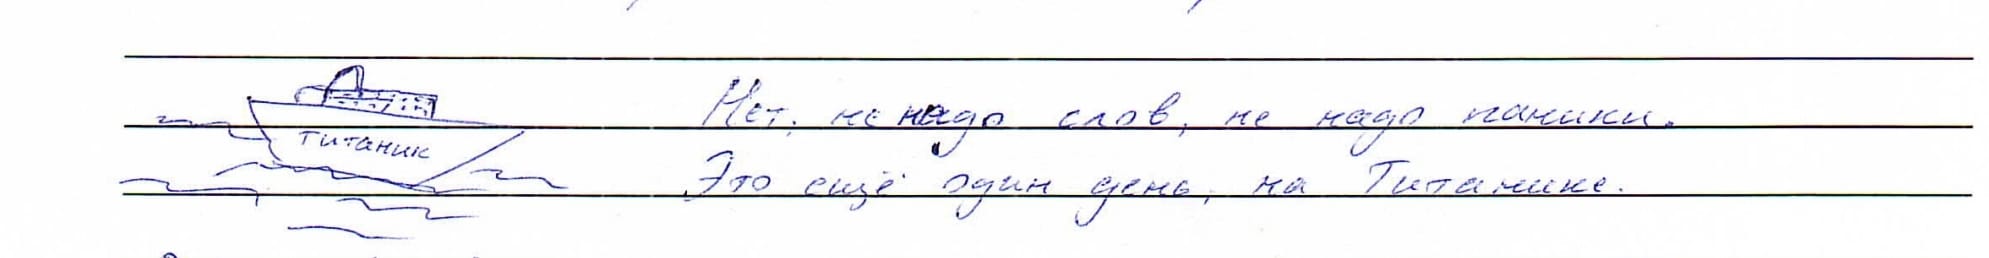 титаник
Нет, не надо слов, не надо паники.
Это ещё один день, на Титанике.